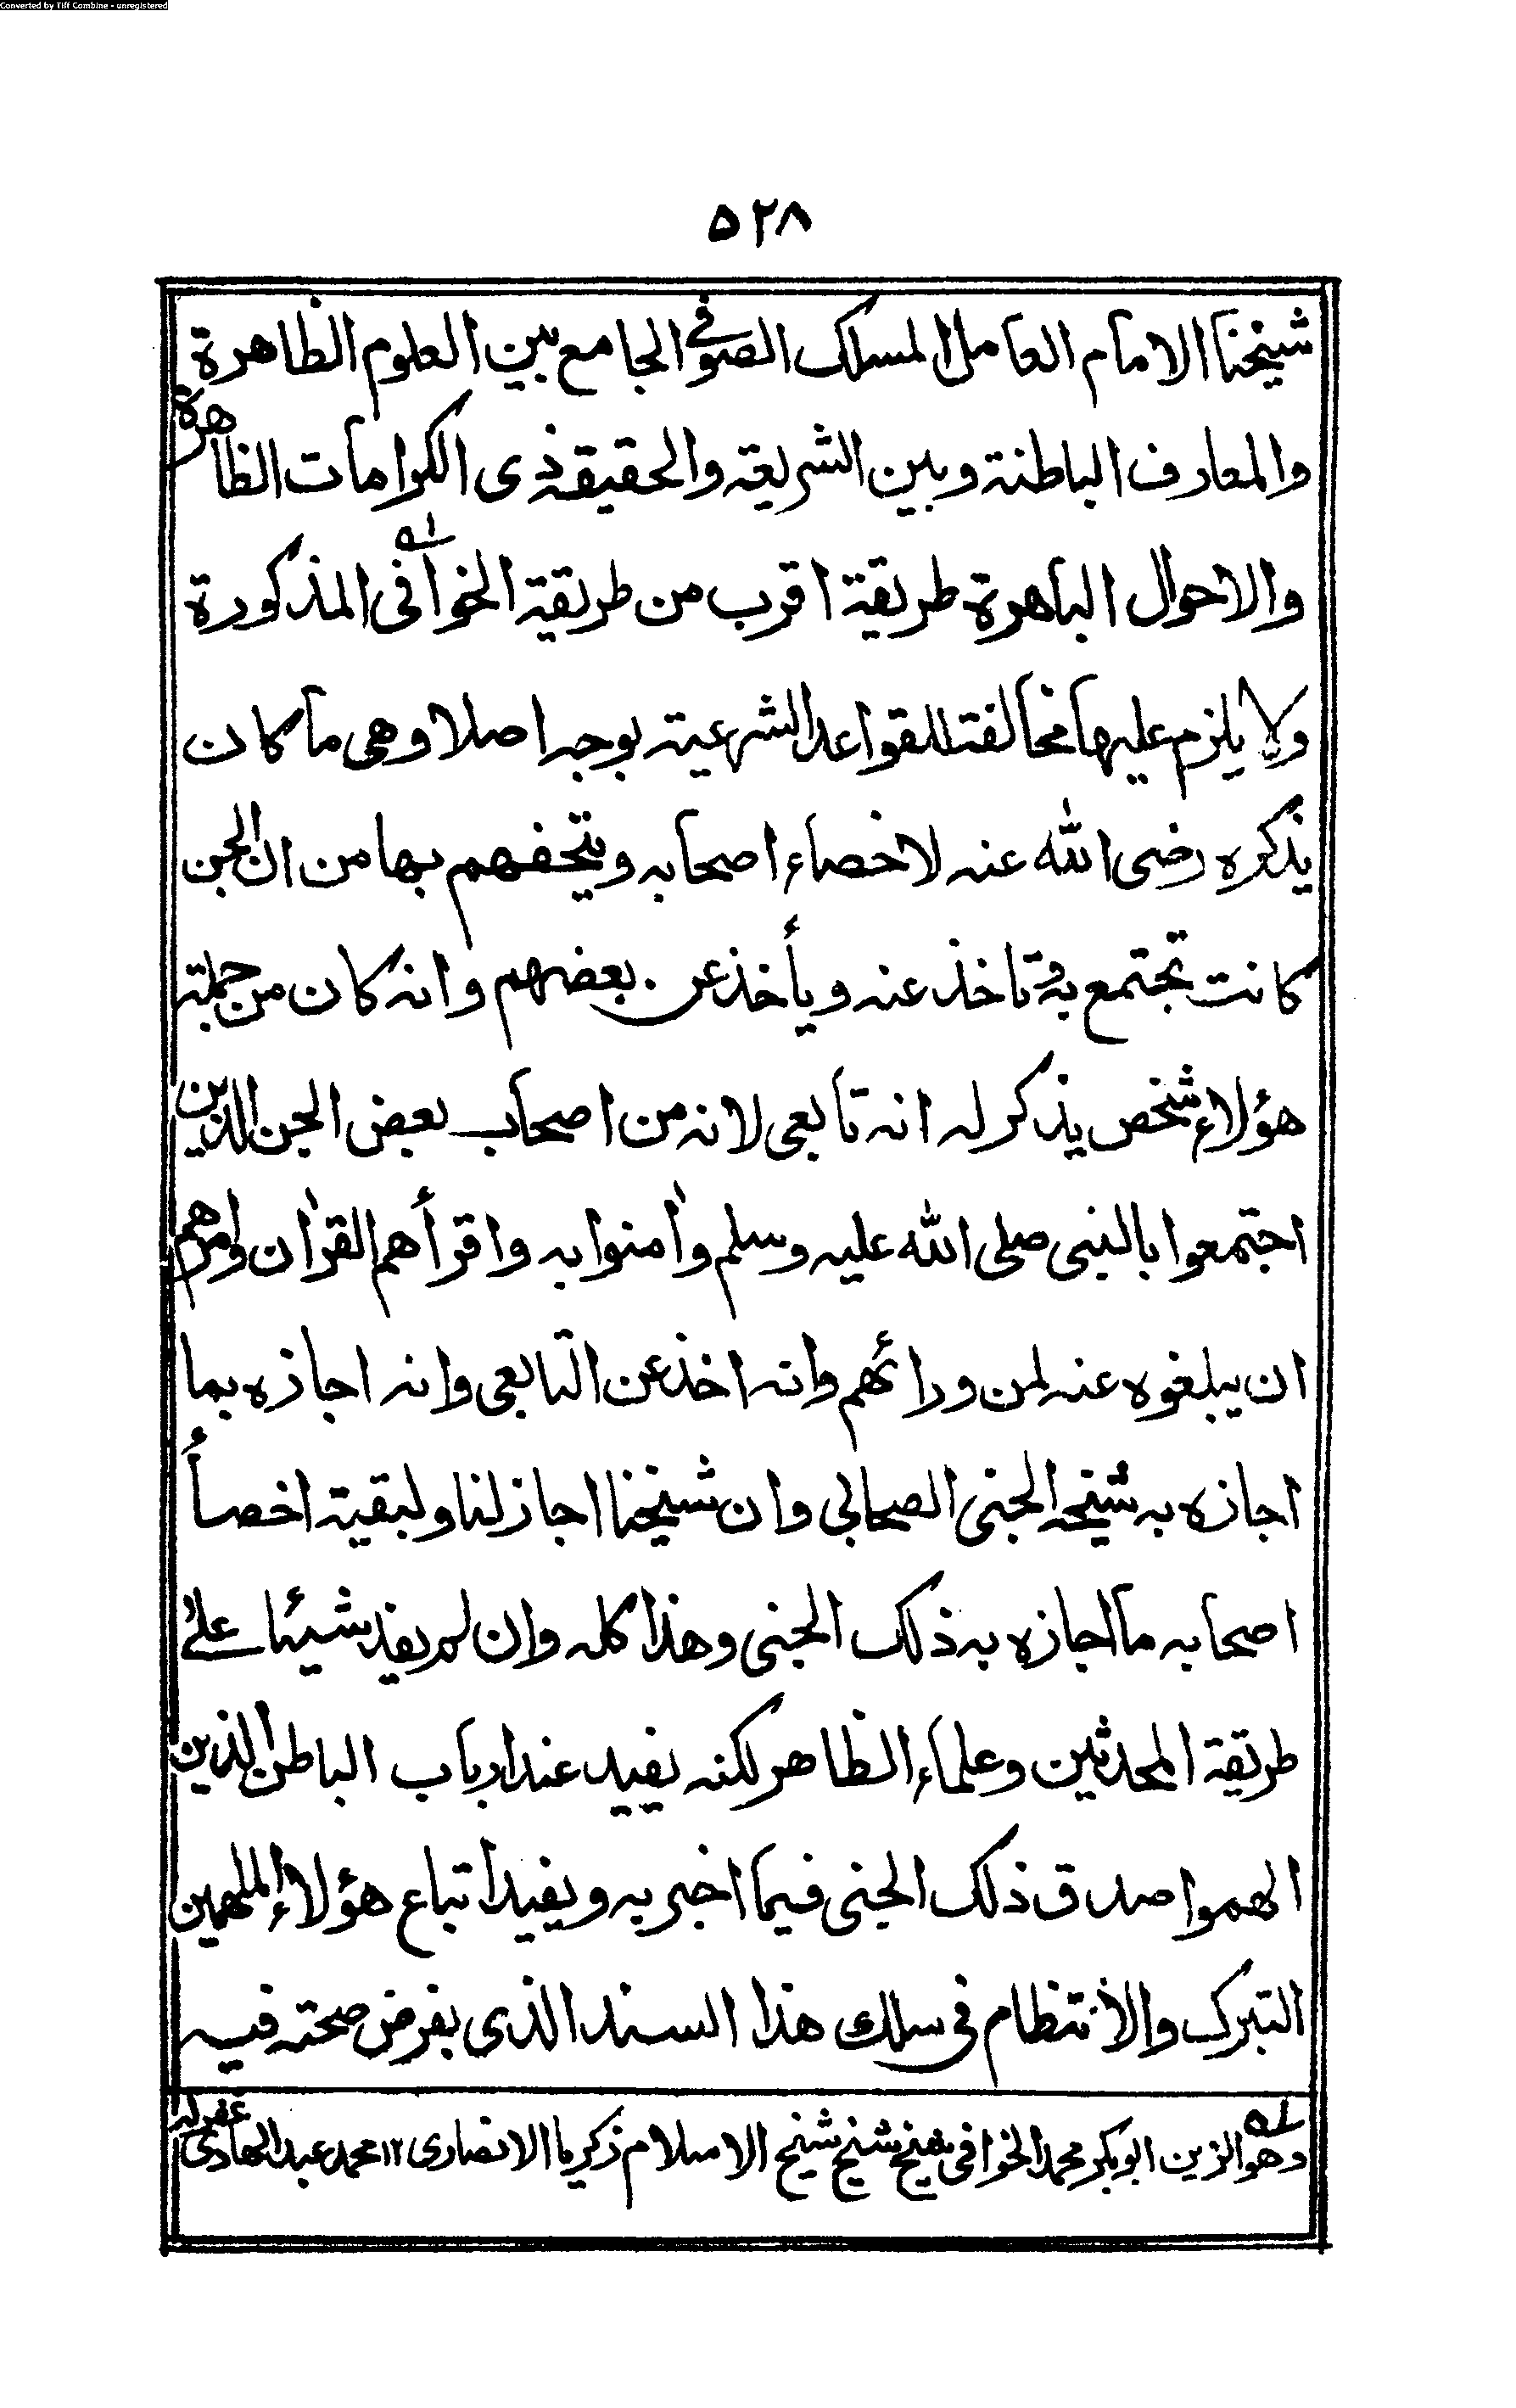 Converted by Tiff Combine - unregistered
٥٢٨
شيخنا الامام العامل المسلك الصوفي الجامع بين العلوم الظاهرة
والمعارف الباطنة وبين الشريعة والحقيقة ذى الكرامات الظاهرة
والاحوال الباهرة طريقة اقرب من طريقة الخوافى المذكورة
ولا يلزم عليها مخالفة للقواعد الشرعية بوجه اصلا وهى ما كان
يذكره رضى الله عنه لاخصاء اصحابه ويتحفهم بها من ان الجن
كانت تجتمع به وتاخذ عنه ويأخذ عن بعضهم وانه كان من جملة
هؤلاء شخص يذكر له انه تابعى لانه من اصحاب بعض الجن الذين
اجتمعوا بالنبى صلى الله عليه وسلم وأمنوا به واقرأهم القرأن وامرهم
ان يبلغوه عنه لمن ورائهم وانه اخذ عن التابعى وانه اجازه بما
اجازه به شيخه الجنى الصحابى وان شيخنا اجاز لنا ولبقية اخصاء
اصحابه ما اجازه به ذلك الجنى وهذا كله وان لم يفد شيئا على
طريقة المحدثين وعلماء الظاهر لكنه يفيد عند ارباب الباطن الذين
الهموا صدق ذلك الجنى فيما اخبر به ويفيد اتباع هؤلاء الملهمين
التبرك والانتظام فى سلك هذا السند الذى بفرض صحته فيه
له وهو الزين ابوبكر محمد الخوافى شيخ شيخ شيخ الاسلام زكريا الانصارى ١٢ محمد عبد الهادى غفر له